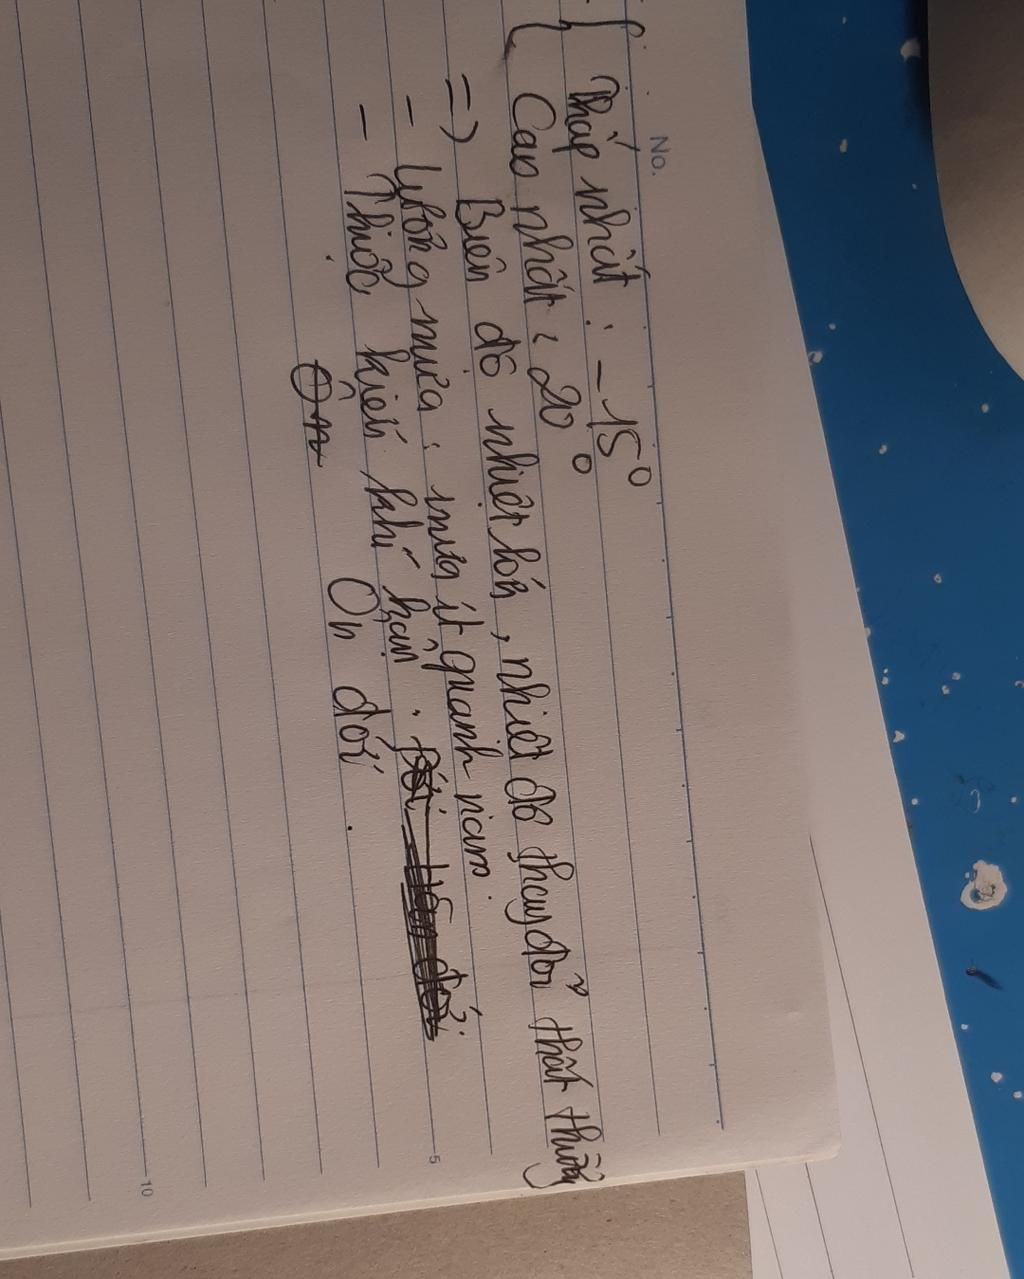 No.
Thấp nhất : -15°
Cao nhất : 20°
=) Biên độ nhiệt lớn, nhiệt độ thay đổi thất thường
- Lượng mưa : mưa ít quanh năm.
- Thuộc kiểu khí hậu.
Ôn
Ôn đới.
5
10